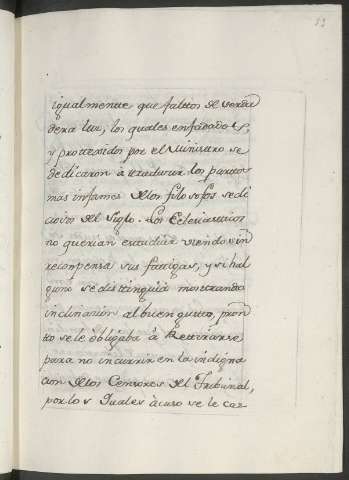 53
igualmente que faltos de verda
dera luz, los quales enfadados,
y protexidos por el Ministro se
dedicaron à traducir los partos
mas infames de los filosofos sedi
ciosos del Siglo. Los Eclesiasticos
no querian estudiar viendo sin
reconpensa sus fattigas, y si hal
guno se distinguia mostrando
inclinacion al buen gusto, pron
tto se le obligaba à Rettirarse
para no incurrir en la indigna
cion de los Censores del Tribunal,
por los Quales àcaso se le cas